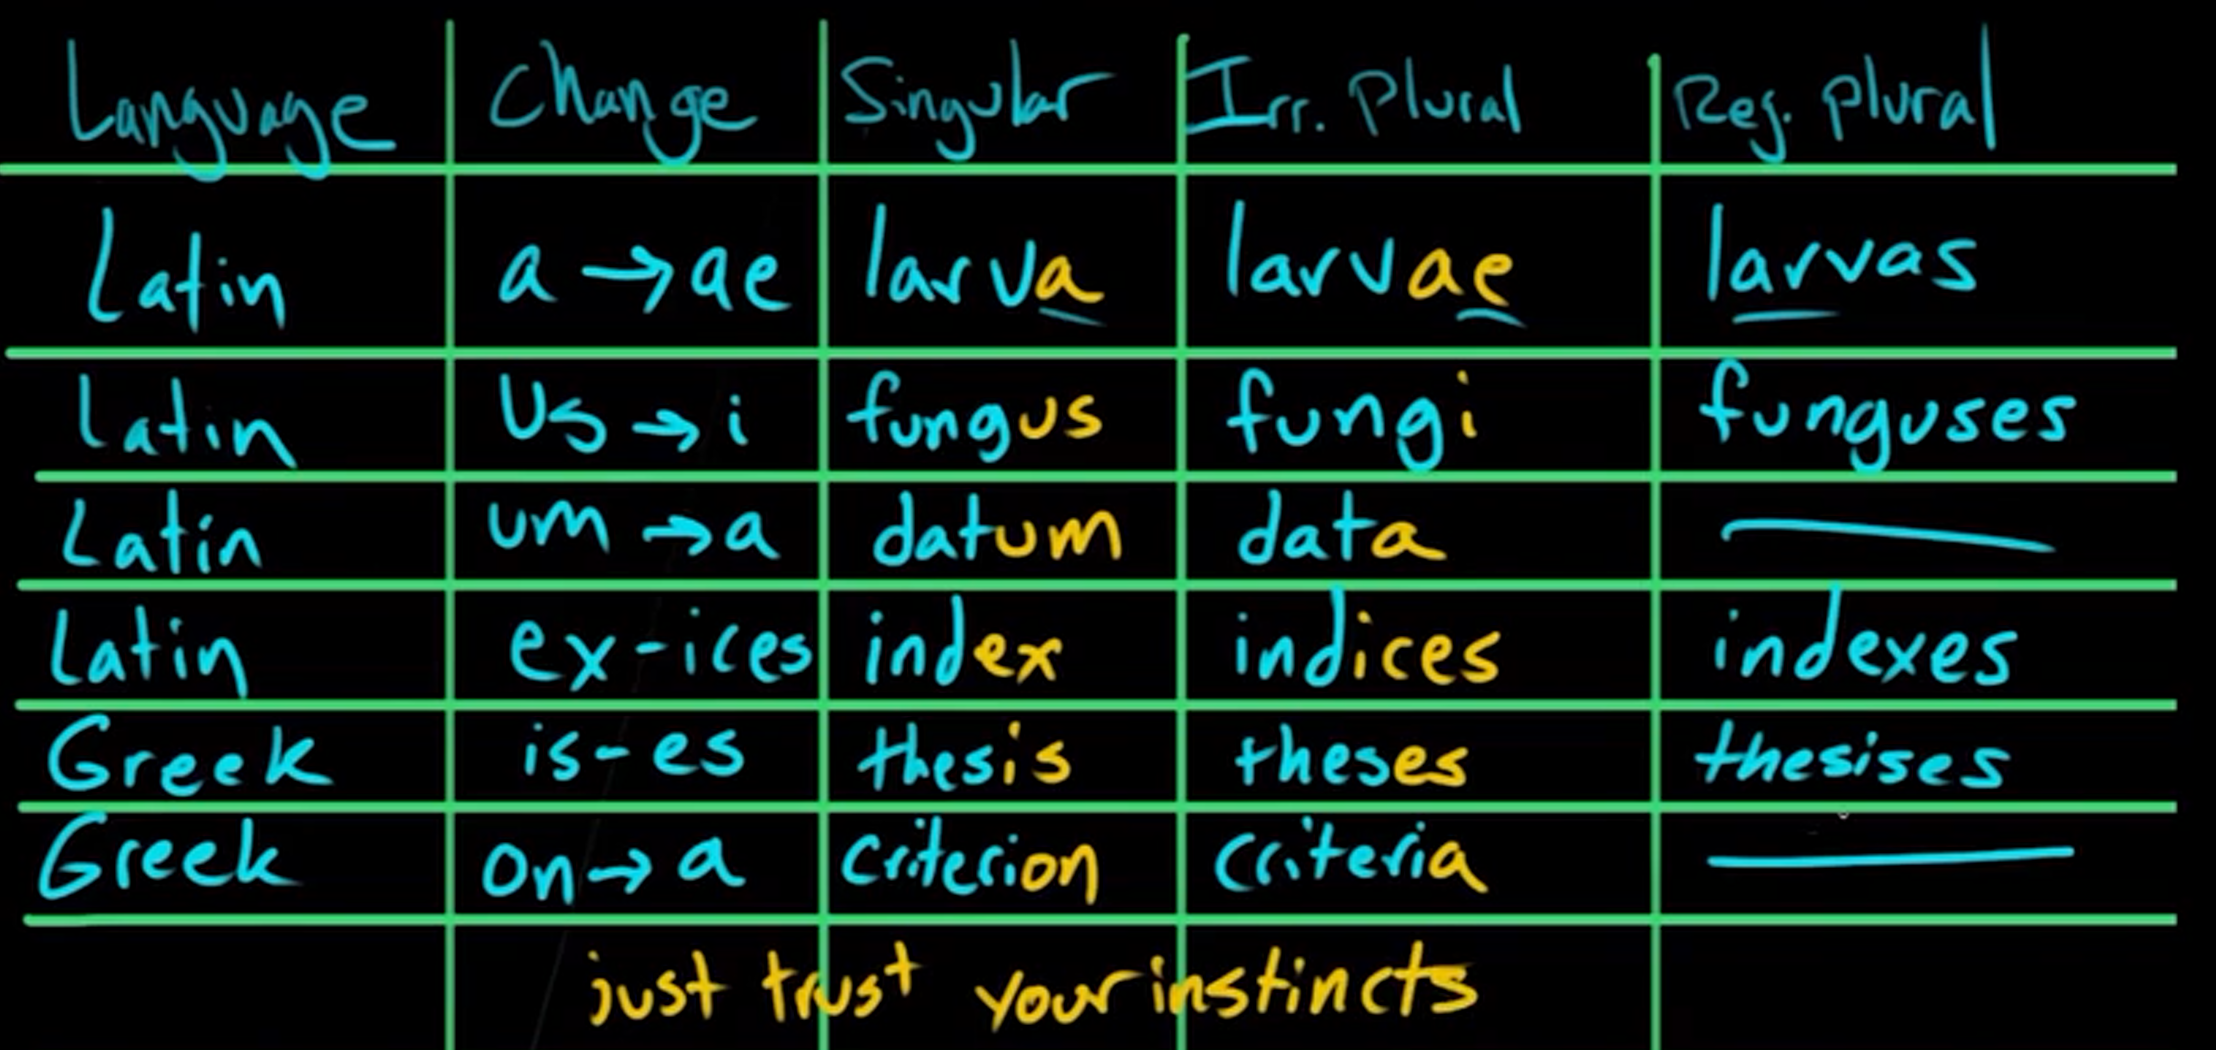 Language Change Singular Irr. Plural Reg. plural
Latin a → ae larva larvae larvas
Latin Us → i fungus fungi funguses
Latin um → a datum data
Latin ex-ices index indices indexes
Greek is-es thesis theses thesises
Greek on → a criterion criteria
just trust your instincts